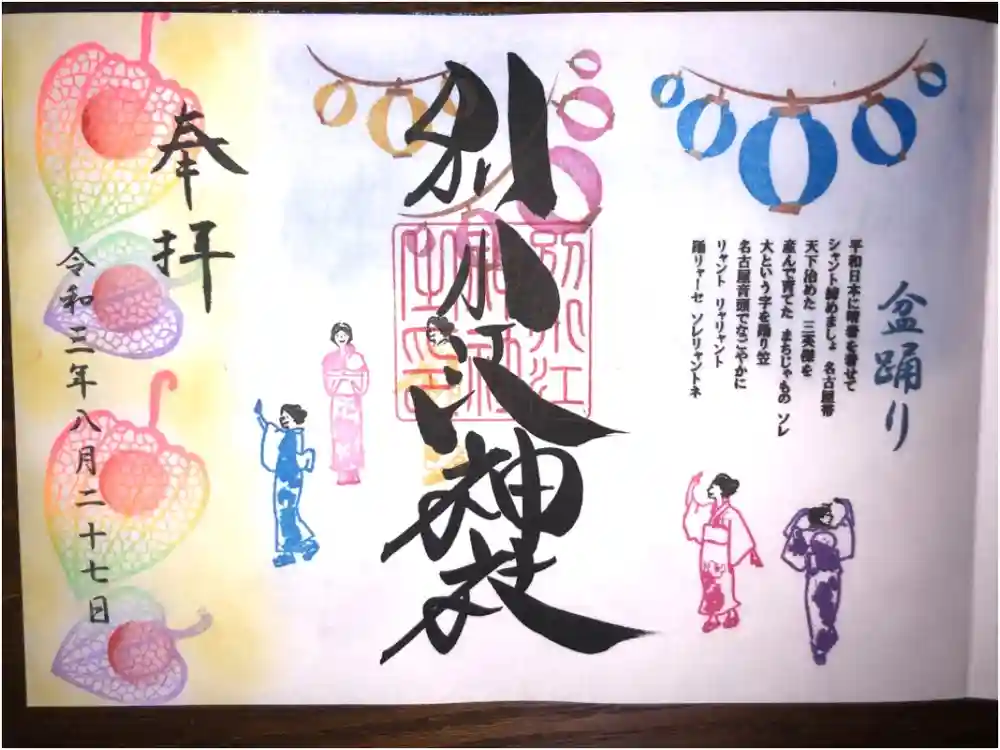 盆踊り
平和日本に晴着を着せて
シャント締めましょ 名古屋帯
天下治めた 三英傑を
産んで育てた まちじゃもの ソレ
大という字を踊り笠
名古屋音頭でなごやかに
リャント リャリャント
踊リャーセ ソレリャントネ
別小江神社
別小江
神社
之印
奉拝
令和三年八月二十七日